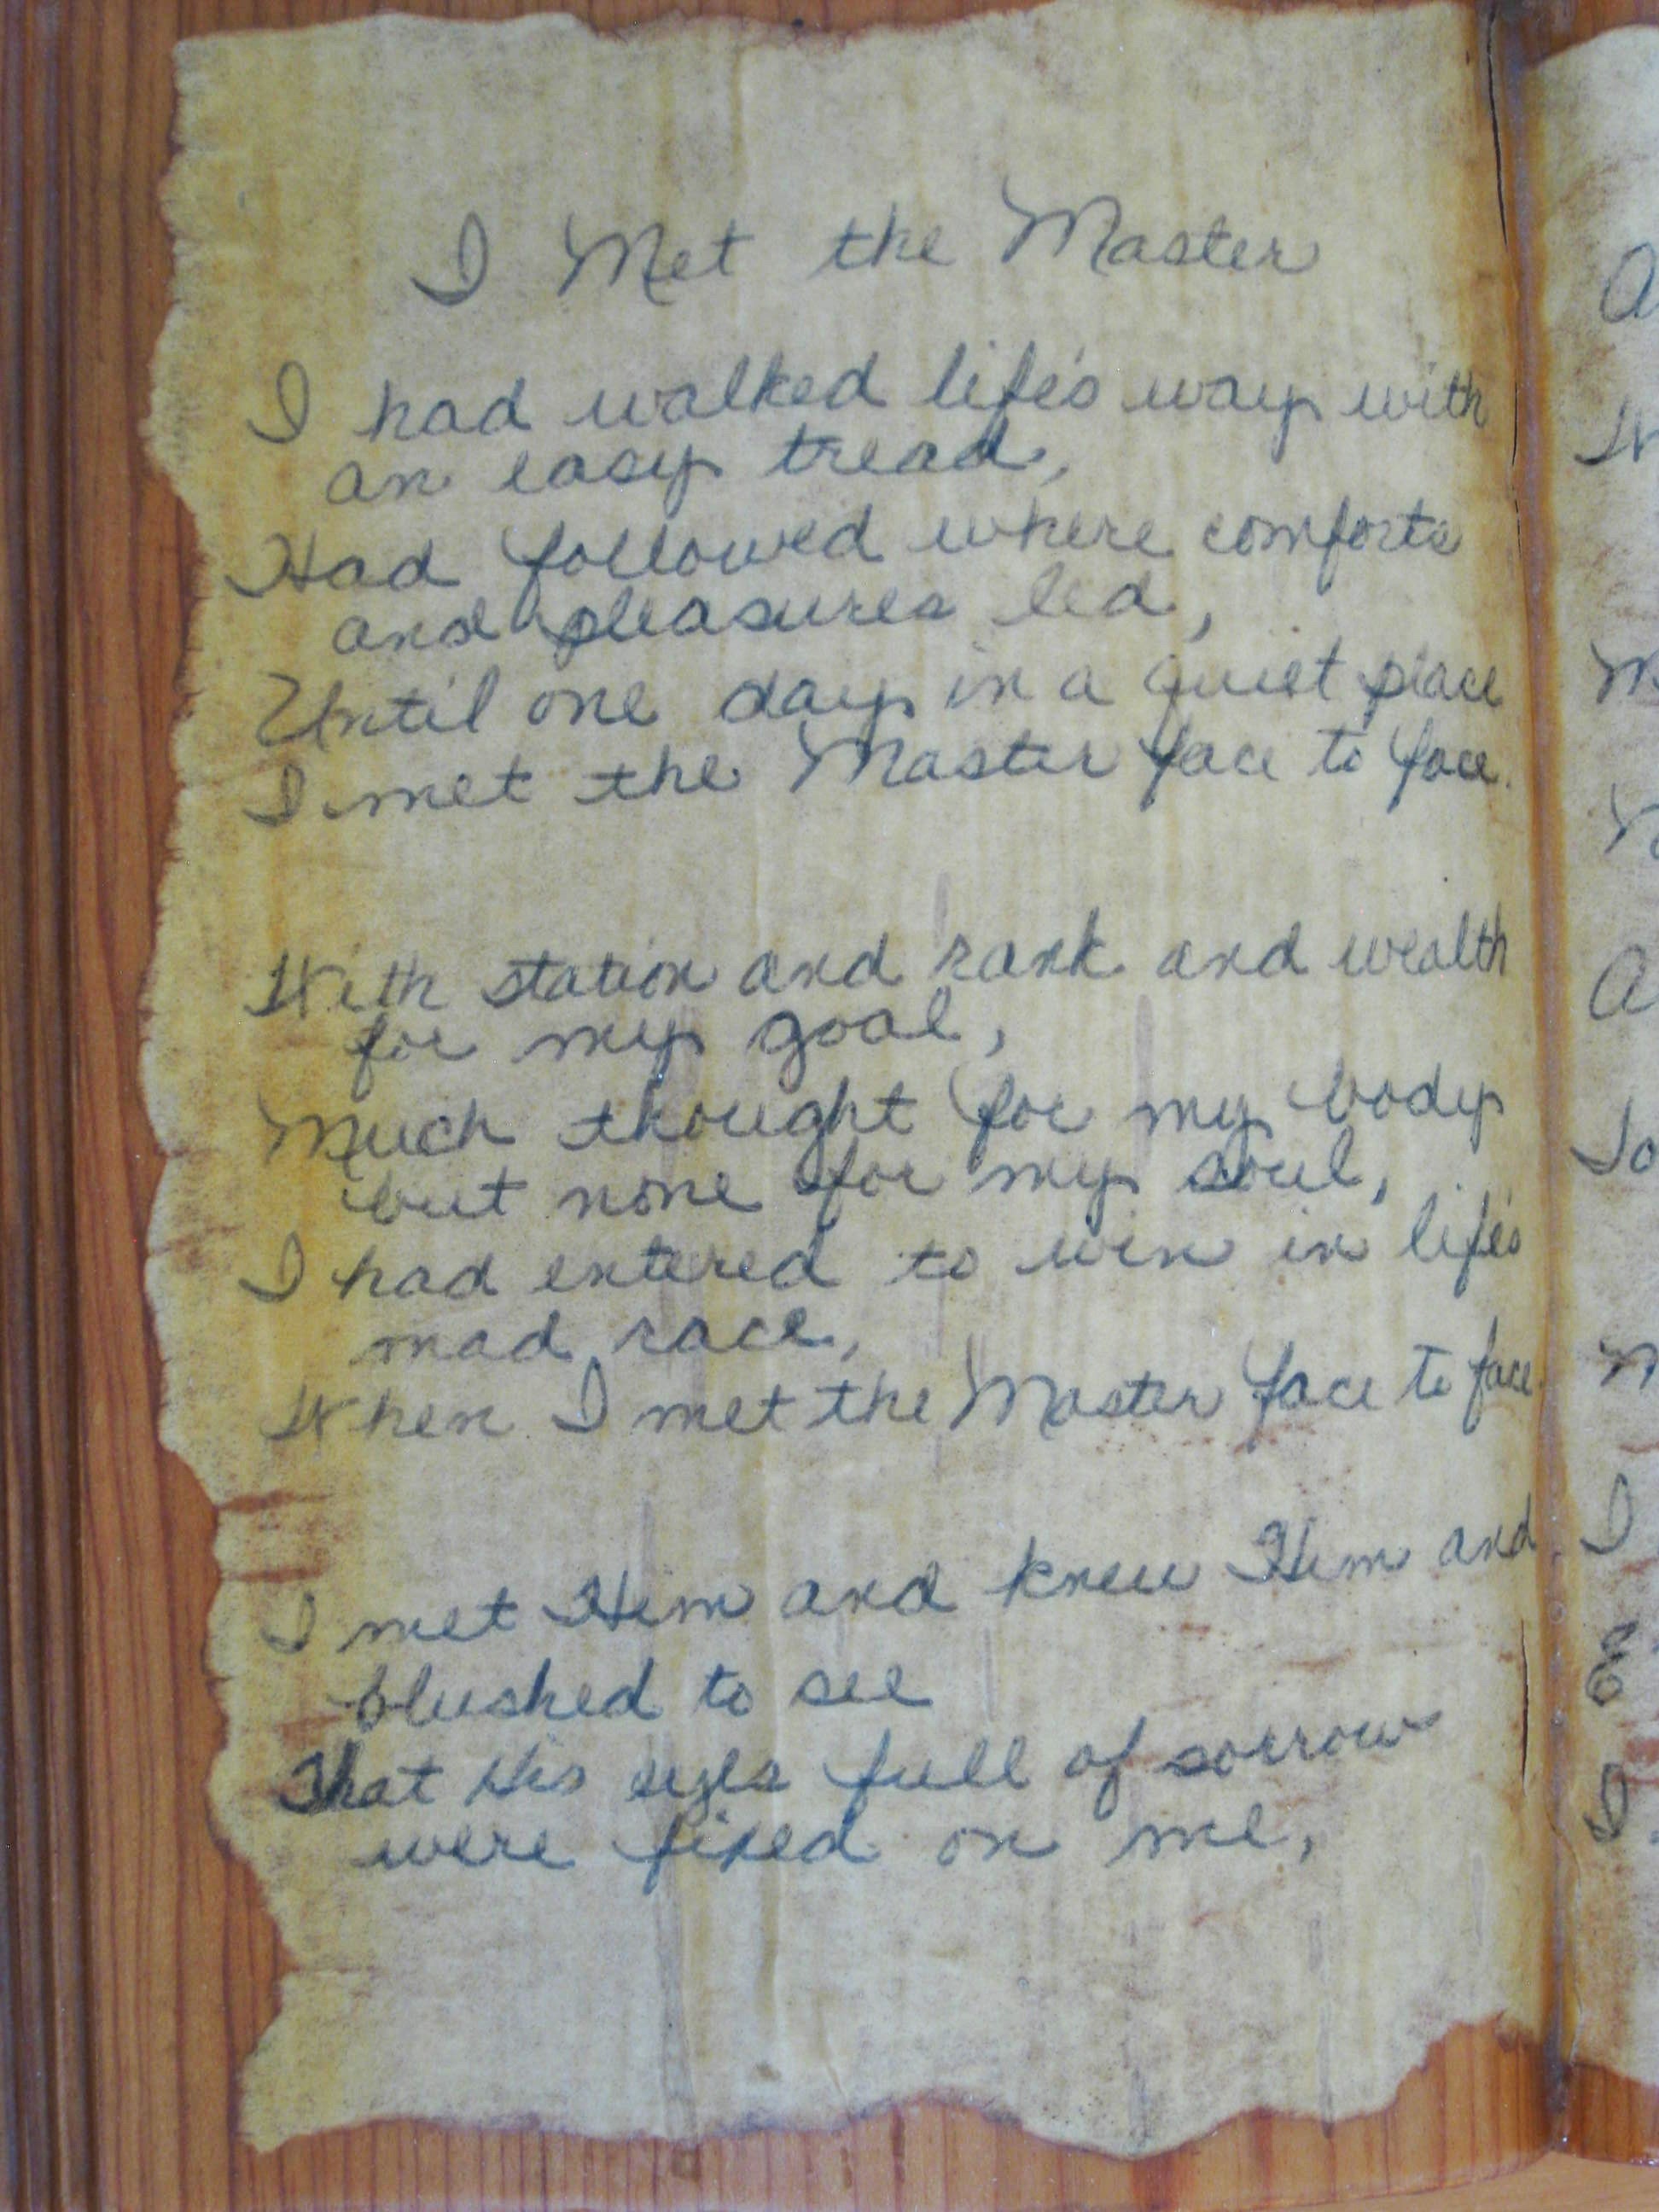 I Met the Master
I had walked life's way with
an easy tread,
Had followed where comforts
and pleasures led,
Until one day in a quiet place
I met the Master face to face.
With station and rank and wealth
for my goal,
Much thought for my body
but none for my soul,
I had entered to win in life's
mad race,
When I met the Master face to face.
I met Him and knew Him and
blushed to see
That His eyes full of sorrow
were fixed on me,